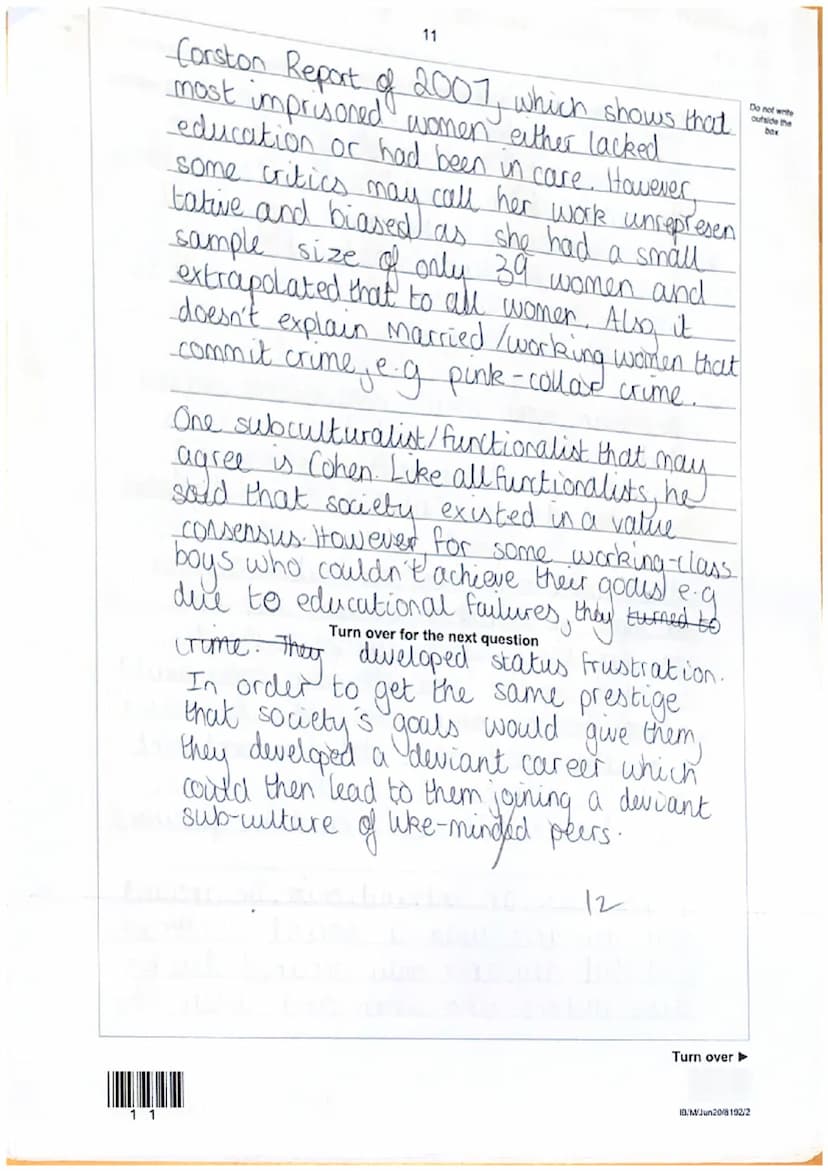 11
Corston Report of 2007, which shows that
most imprisoned women either lacked
education or had been in care. However,
some critics may call her work unrepresen
tative and biased as she had a small
sample size of only 39 women and
extrapolated that to all women. Also, it
doesn't explain married/working women that
commit crime, e.g pink-collar crime.
Do not write
outside the
box
One subculturalist/functionalist that may
agree is Cohen. Like all functionalists, he
said that society existed in a value
consensus. However, for some working-class
boys who couldn't achieve their goals e.g
due to educational failures, they turned to
Turn over for the next question
crime. They developed status frustration.
In order to get the same prestige
that society's goals would give them,
they developed a deviant career which
could then lead to them joining a deviant
subculture of like-minded peers.
12
Turn over ►
1 1
IB/M/Jun20/8192/2